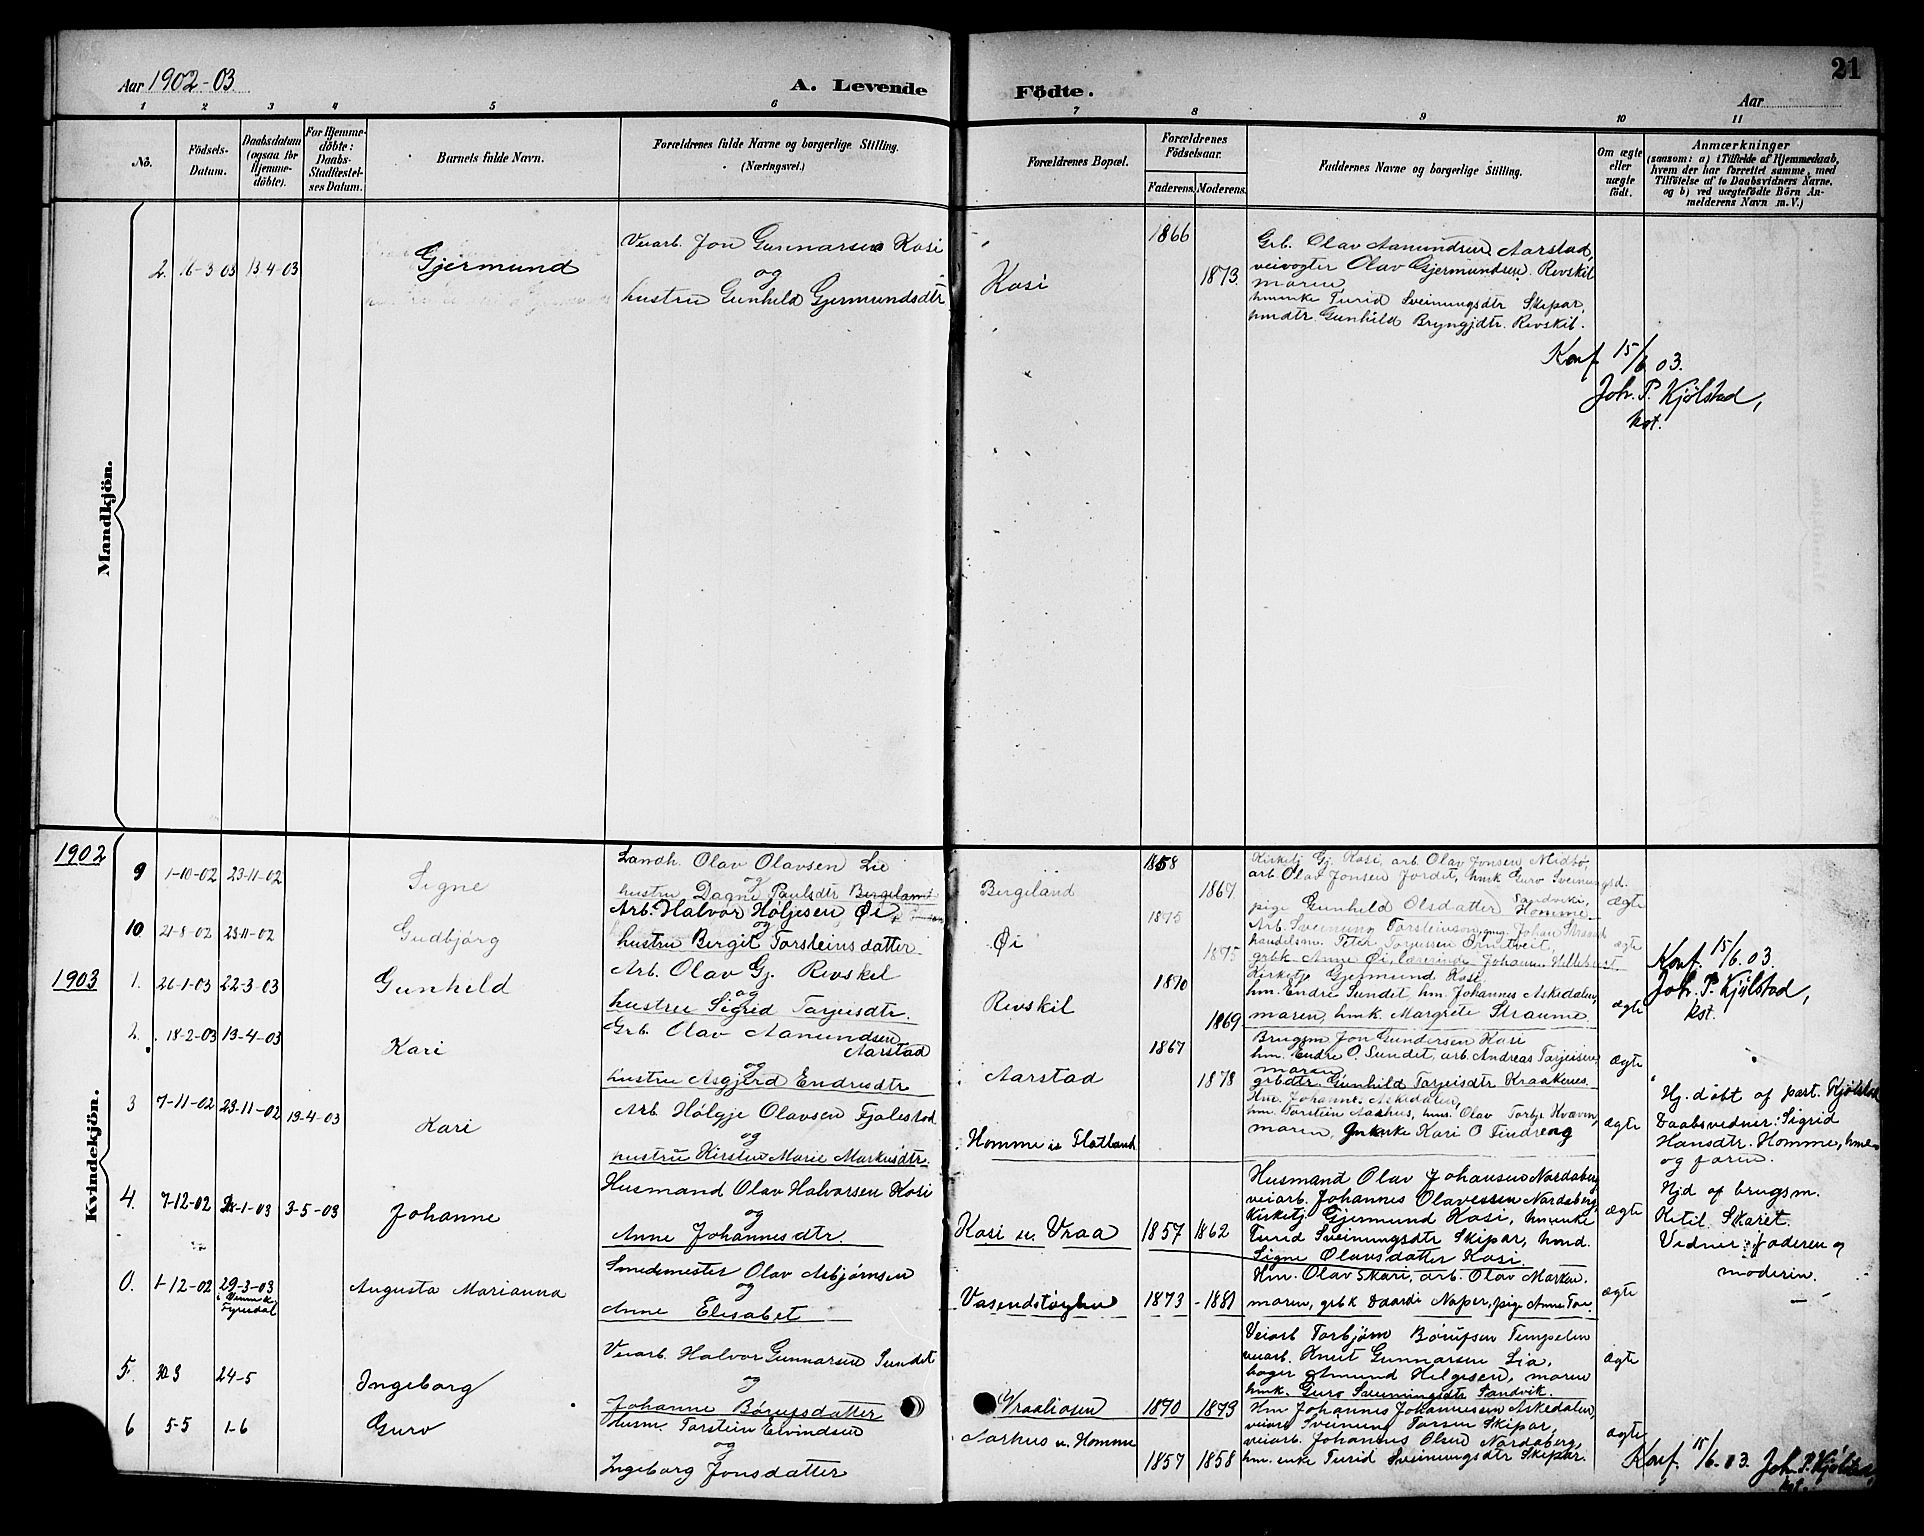 Aar 1902-03.
A. Levende Födte.
21
Aar
1 2 3 4 5 6 7 8 9 10 11
No.
Födsels-Datum.
Daabsdatum (ogsaa for Hjemme-döbte).
For Hjemme-döbte: Daabs-Stadfæstelses Datum.
Barnets fulde Navn.
Forældrenes fulde Navne og borgerlige Stilling. (Næringsvei.)
Forældrenes Bopæl.
Forældrenes Födselsaar.
Faderens. Moderens.
Faddernes Navne og borgerlige Stilling.
Om ægte eller uægte födt.
Anmærkninger
(saasom: a) i Tilfælde af Hjemmedaab,
hvem der har forrettet samme, med
Tilföielse af to Daabsvidners Navne,
og b) ved uægtefödte Börn An-
melderens Navn m. V.)
Mandkjön.
2. 16-3 03 13-4-03 Gjermund
Veiarb. Jon Gunnarsen Kosi
og
hustru Gunhild Gjermundsdtr
Kosi
1866 1873.
Grb. Olav Aamundsen Aarstad,
veivogter Olav Gjermundsen Revskil
maren,
hmenke Turid Sveinungsdtr Skipar,
pmdtr. Gunhild Bryngjdtr. Revskil.
Konf 15/6 03.
Joh. P. Kjölstad,
kst.
Kvindekjön.
1902
9 1-10-02 23-11-02 Signe
Landh. Olav Olavsen Lie
og
hustru Dagne Paulsdtr Bergeland
Bergeland
1858 1867
Kirketj Gj. Kosi, arb. Olav Jonsen Midbø,
arb Olav Jonsen Jordet, hmk Guro Sveinungsd.
Sandvik,
pige Gunhild Olsdatter Homme
ægte
10 21-8-02 23-11-02 Gudbjörg
Arb. Halvor Høljesen Øi
og
hustru Bergit Torsteinsdatter
Øi
1875 1875
Arb. Sveinung Torsteinson, gmg. Johan Straand
handelsm. Peter Torjussen Ormtveit,
grbk Anne Øi, lærerinde Johanne
ægte
Konf. 15/6.03.
Joh. P. Kjölstad,
kst.
1903
1. 26-1-03 22-3-03 Gunhild
Arb. Olav Gj. Revskil
og
hustru Sigrid Tarjeisdtr.
Revskil
1870 1869
Kirketj Gjermund Kosi,
hm. Endre Sundet, hm. Johannes Askedalen,
maren, hmk. Margrete Straume
ægte
2. 18-2-03 13-4-03 Kari
Grb. Olav Aamundsen
Aarstad
og
hustru Asgjerd Endresdtr
Aarstad
1867 1878
Brugsm Jon Gundersen Kosi
hm. Endre O. Sundet, arb. Andreas Tarjeisen,
maren
grbdtr. Gunhild Tarjeisdtr Kraakenes
ægte
3 7-11-02 23-11-02 13-4-03 Kari
Arb Hölgje Olavsen Fjalestad
og
hustru Kirsten Marie Markusdtr.
Homme u Flatland
Hm. Johannes Askedalen,
hm. Torstein Aarhus, hms. Olav Torbj. Kvævn,
maren, Gmenke Kari O Findreng
ægte
Hj. döbt af part. Kjölstad
Daabsvidner: Sigrid
Hansdtr. Homme, hme
og faren.
4. 7-12-02 -1-03 3-5-03 Johanne
Husmand Olav Halvorsen Kosi
og
Anne Johannesdtr.
Kosi u. Vraa
1857 1862
Husmand Olav Johansen Nordaberg
veiarb. Johannes Olavessen Nordaberg
Kirketj Gjermund Kosi, hmenke
Turid Sveinungsdtr Skipar, hmd.
Signe Olavsdatter Kosi.
ægte
Hjd af brugsm.
Ketil Skaret.
Vidner: Faderen og
moderen.
0. 1-12-02 29-3-03
Fyresdal
Augusta Marianna
Smedmester Olav Asbjørnsen
og
Anne Elisabet
Vasendstøylen
1873 - 1881
Hm. Olav Skari, arb. Olav Marken.
maren, grbk Daardi Naper, pige Anne Tor.
ægte
5. 30 3 24-5 Ingeborg
Veiarb. Halvor Gunnarsen Sundet
og
Johanne Börufsdatter
Vraaliosen
1870 1873
Veiarb Torbjörn Börufsen Tempelen
veiarb. Knut Gunnarsen Lia,
bager Amund Helgesen, maren
hmk. Guro Sveinungsdtr Sandvik.
ægte
6 5-5 1-6 Guro
Husm. Torstein Eivindsen
og
Ingeborg Jonsdatter
Aarhus u. Homme
1857 1858
Hm Johannes Johannessen Askedalen,
veiarb Sveinung Torsen Skipar,
veiarb. Johannes Olsen Nordaberg,
hm. enke Turid Sveinungsdtr Skipar.
ægte
Konf. 15/6.03. Joh. P. Kjölstad,
kst.